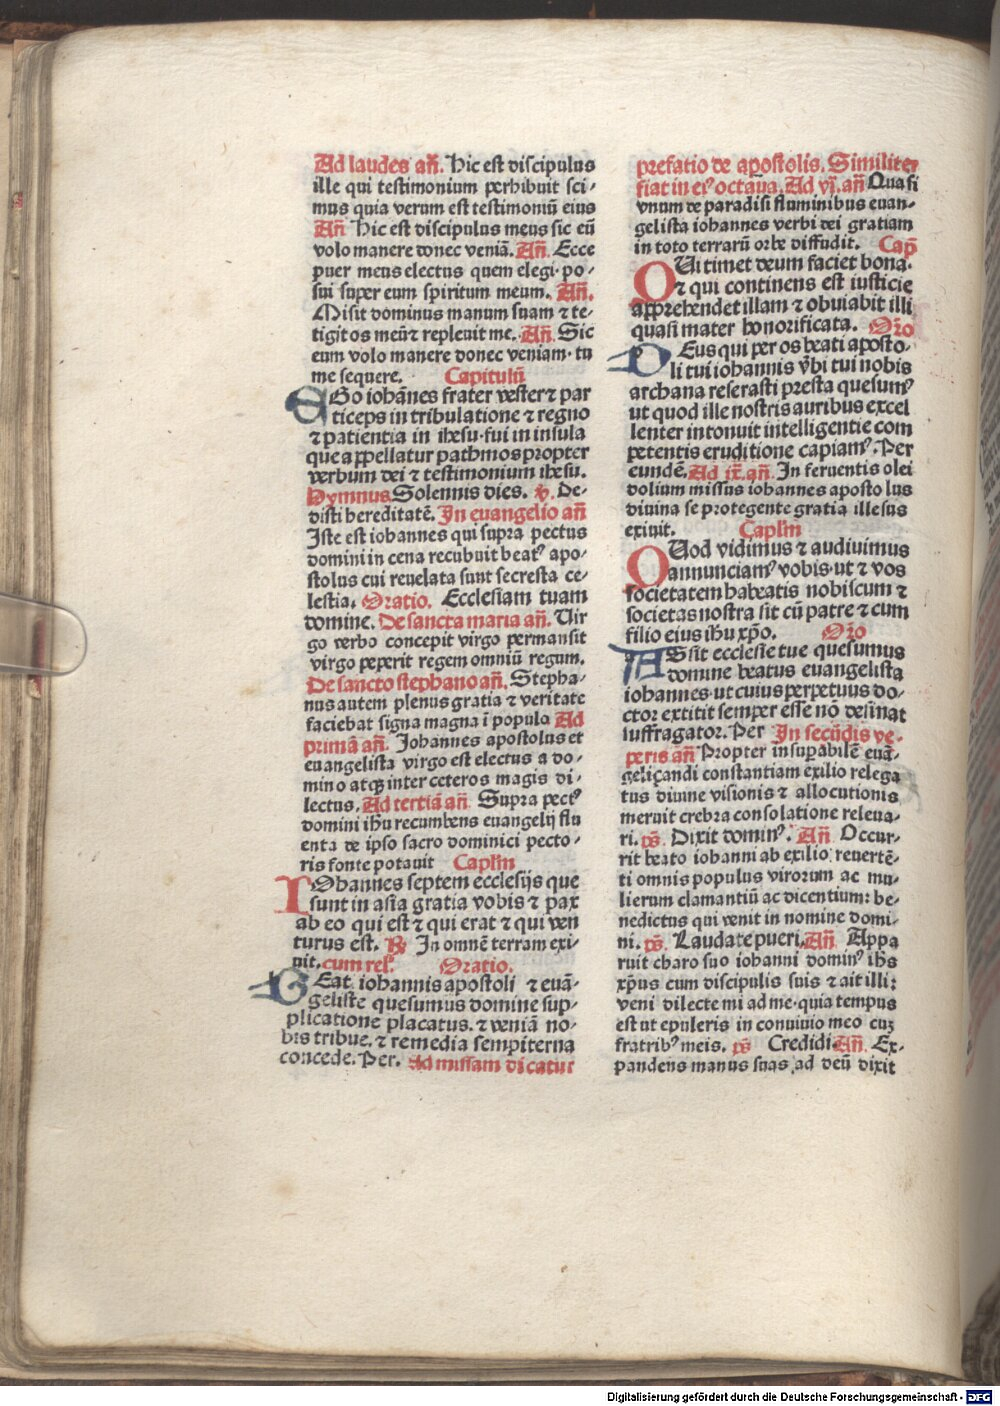 Ad laudes añ. Hic est discipulus
ille qui testimonium perhibuit sci⸗
mus quia verum est testimoniū eius
Añ Hic est discipulus meus sic eū
volo manere donec veniā. Añ. Ecce
puer meus electus quem elegi·po⸗
sui super eum spiritum meum. Añ.
Misit dominus manum suam ⁊ te⸗
tigit os meū ⁊ repleuit me. Añ. Sic
eum volo manere donec veniam·tu
me sequere. Capitulū
EGo iohānes frater vester ⁊ par
ticeps in tribulatione ⁊ regno
⁊ patientia in ihesu·fui in insula
que appellatur pathmos propter
verbum dei ⁊ testimonium ihesu.
Hymnus Solennis dies. ꝟ. De⸗
disti hereditatē. In euangelio añ
Iste est iohannes qui supra pectus
domini in cena recubuit beatꝰ apo⸗
stolus cui reuelata sunt secresta ce⸗
lestia. Oratio. Ecclesiam tuam
domine. De sancta maria añ. Uir
go verbo concepit virgo permansit
virgo peperit regem omniū regum.
De sancto stephano añ. Stepha⸗
nus autem plenus gratia ⁊ veritate
faciebat signa magna ī populo Ad
primā añ. Johannes apostolus et
euangelista virgo est electus a do⸗
mino atqꝫ inter ceteros magis di⸗
lectus. Ad tertiā añ Supra pectꝰ
domini ihū recumbens euangelij flu
enta de ipso sacro dominici pecto⸗
ris fonte potauit Caplm̄
IOhannes septem ecclesijs que
sunt in asia gratia vobis ⁊ pax
ab eo qui est ⁊ qui erat ⁊ qui ven
turus est. ℟ In omnē terram exi⸗
uit. cum rel'. Oratio.
BEati iohannis apostoli ⁊ euā⸗
geliste quesumus domine sup⸗
plicatione placatus. ⁊ veniā no⸗
bis tribue. ⁊ remedia sempiterna
concede. Per. Ad missam dicatur
prefatio de apostolis. Similiter
fiat in eiꝰ octaua. Ad vj. añ Quasi
vnum de paradisi fluminibus euan⸗
gelista iohannes verbi dei gratiam
in toto terrarū orbe diffudit. Cap̄
QUi timet deum faciet bona.
⁊ qui continens est iusticie
apprehendet illam ⁊ obuiabit illi
quasi mater honorificata. Oro
DEus qui per os beati aposto⸗
li tui iohannis v̄bi tui nobis
archana reserasti presta quesumꝰ
ut quod ille nostris auribus excel
lenter intonuit intelligentie com
petentis eruditione capiamꝰ. Per
eundē. Ad ix. añ. In feruentis olei
dolium missus iohannes aposto lus
diuina se protegente gratia illesus
exiuit. Caplm̄
QUod vidimus ⁊ audiuimus
annunciamꝰ vobis·ut ⁊ vos
societatem habeatis nobiscum ⁊
societas nostra sit cū patre ⁊ cum
filio eius ihū xp̄o. Oro
ASsit ecclesie tue quesumus
domine beatus euangelista
iohannes·ut cuius perpetuus do⸗
ctor extitit semper esse nō desinat
suffragator. Per In secūdis ve⸗
peris añ Propter insupabilē euā⸗
geliçandi constantiam exilio relega
tus diuine visionis ⁊ allocutionis
meruit crebra consolatione releua⸗
ri. ps̄. Dixit dominꝰ. Añ. Occur⸗
rit beato iohanni ab exilio reuertē⸗
ti omnis populus virorum ac mu⸗
lierum clamantiū ac dicentium: be⸗
nedictus qui venit in nomine domi⸗
ni. ps̄. Laudate pueri. Añ. Appa
ruit charo suo iohanni dominꝰ ihs̄
xp̄us cum discipulis suis ⁊ ait illi:
veni dilecte mi ad me·quia tempus
est ut epuleris in conuiuio meo cuꝫ
fratribꝰ meis. ps̄ Credidi Añ. Ex⸗
pandens manus suas ad deū dixit
Digitalisierung gefördert durch die Deutsche Forschungsgemeinschaft - DFG